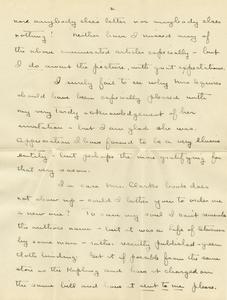 2
nor anybody elses letter nor anybody elses
nothing! Neither have I missed any of
the above enumerated articles especially - but
I do want the picture, with great expectations.
I surely fail to see why Mrs
should have been especially pleased with
my very tardy acknowledgement of her
invitation - but I am glad she was.
Appreciation I have found to be a very elusive
entity - but perhaps the more gratifying for
that very reason.
In case Mrs. Clarks book does
not show up - could I bother you to order me
a new one? To save my soul I cant remember
the authors name - but it was a life of
by some man - rather recently published - green
cloth binding. Get it if possible from the same
store as the Kipling and have it charged on
the same bill and have it sent to me please.